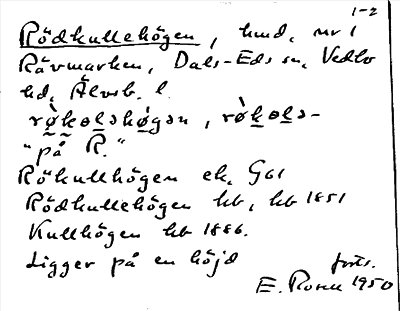 1-2
Rödkullehögen, hmd, nr 1
Rävmarken, Dals-Eds sn, Vedbo
hd, Älvsb. l.
rø̀kəlshø̜gən, rø̀kəls-
"på R."
Rökullhögen ek, G61
Rödkullehögen hb, hb 1851
Kullhögen hb 1886.
Ligger på en höjd
forts.
E. Rosell 1950